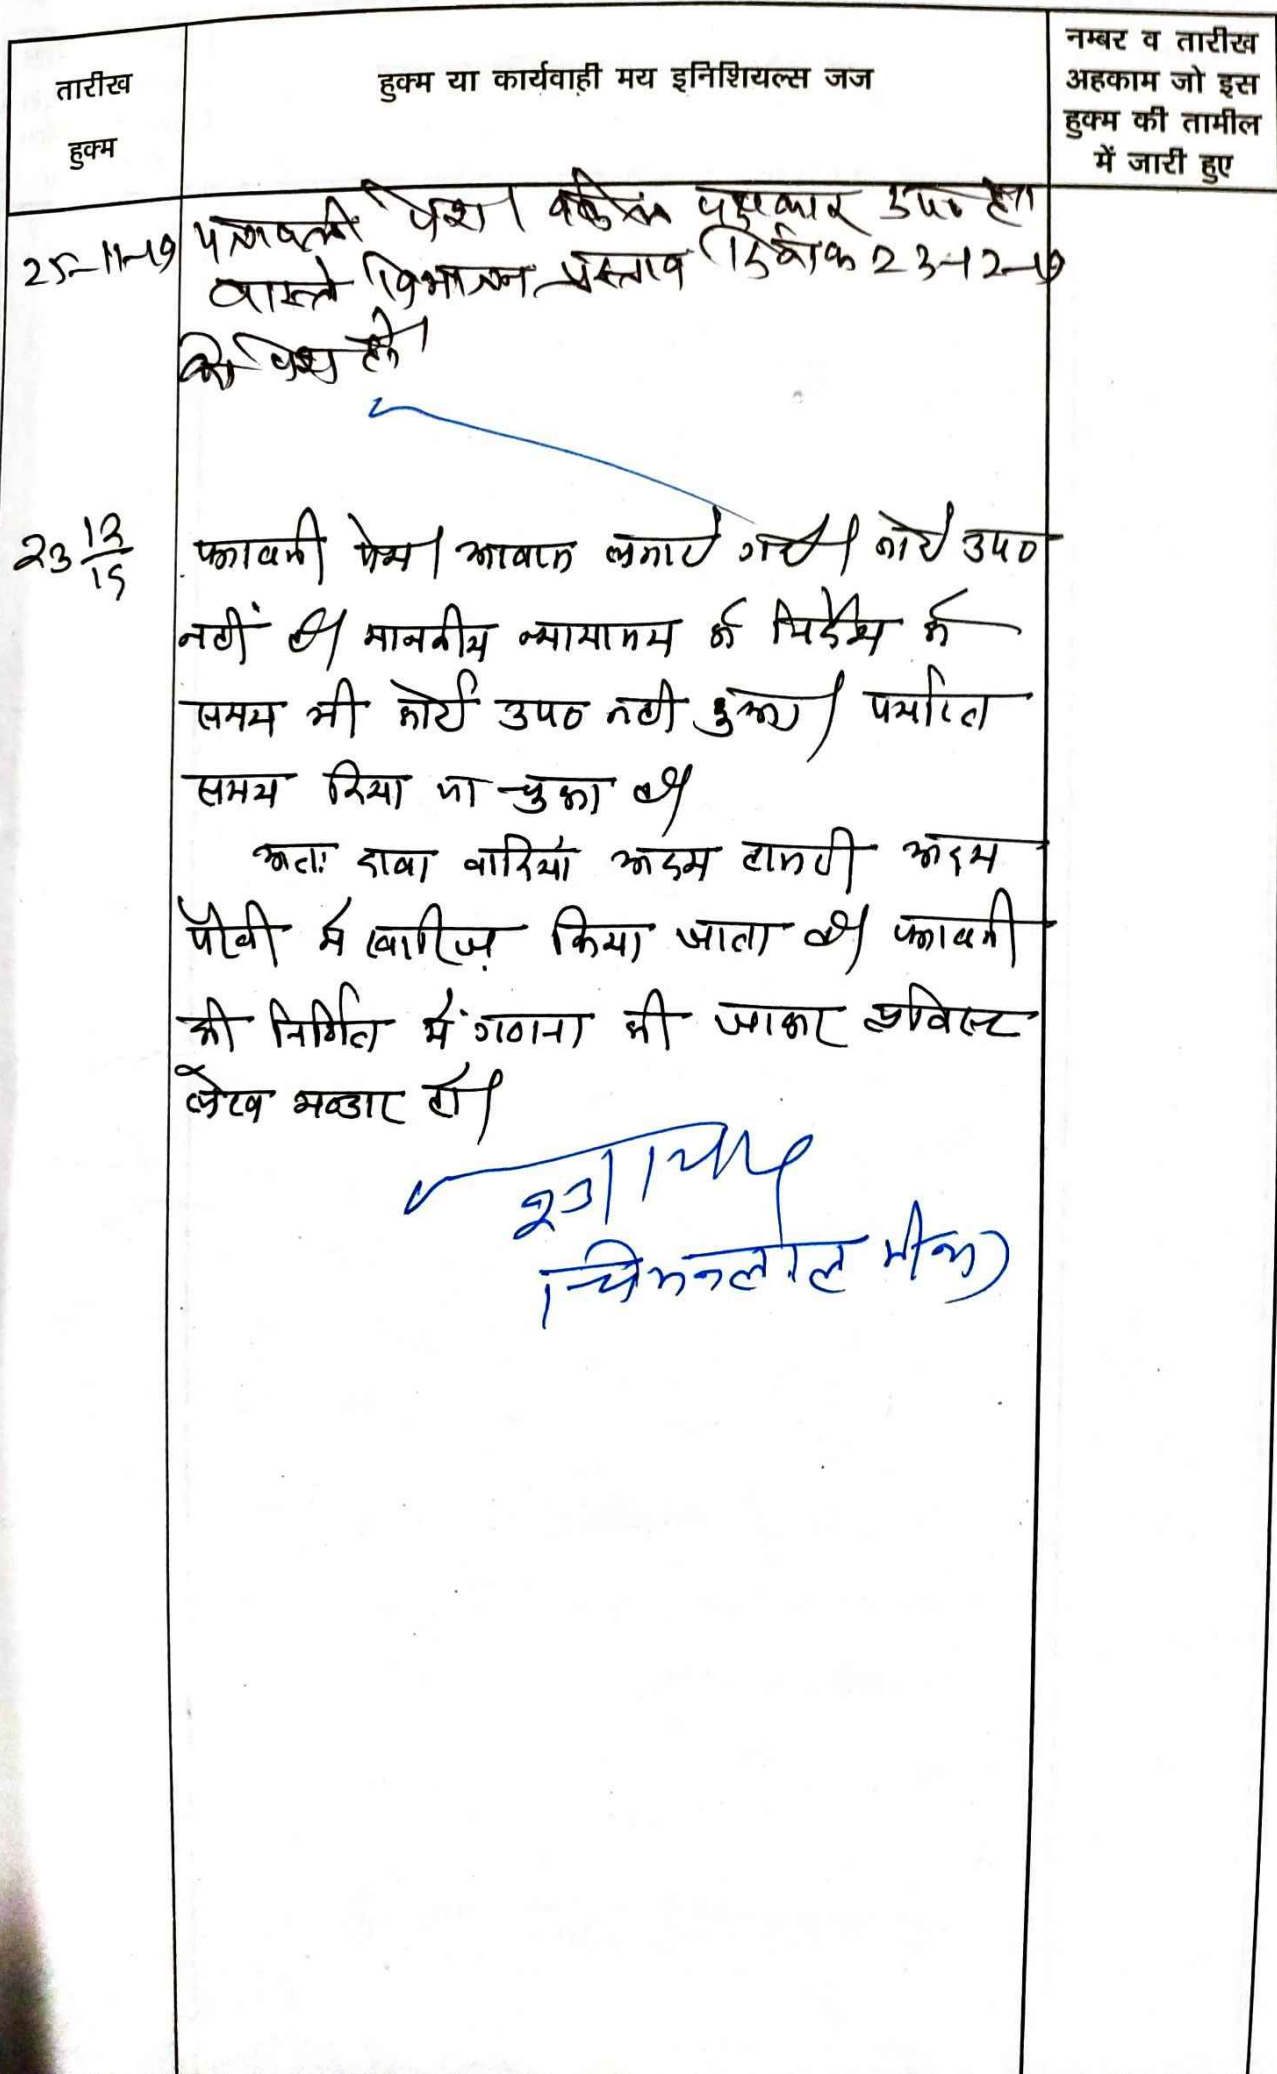 तारीख
हुक्म
हुक्म या कार्यवाही मय इनिशियल्स जज
नम्बर व तारीख
अहकाम जो इस
हुक्म की तामील
में जारी हुए
25-11-19
पत्रावली पेश। वकील पक्षकार उप० है।
वास्ते विभाजन प्रस्ताव दिनांक 23-12-19
को पेश हो।
23 12/19
पत्रावली पेश। आवाज लगाई गयी। कोई उप०
नहीं है। माननीय न्यायालय के निर्देश के
समय भी कोई उप० नहीं हुआ। पर्याप्त
समय दिया जा चुका है।
अतः दावा वादिया अदम हाजरी अदम
पैरवी में खारिज़ किया जाता है। पत्रावली
की निर्णित में गणना की जाकर प्रविस्ट
लेख भण्डार हो।
चिमनलाल मीणा